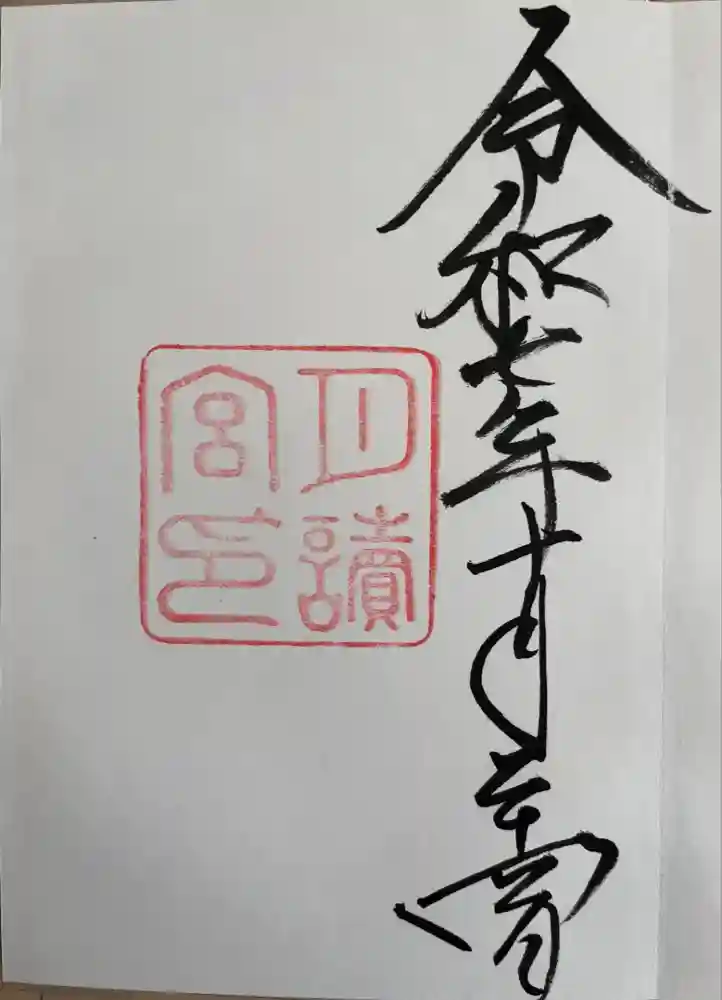 令和七年十月二十日
月讀
宮印